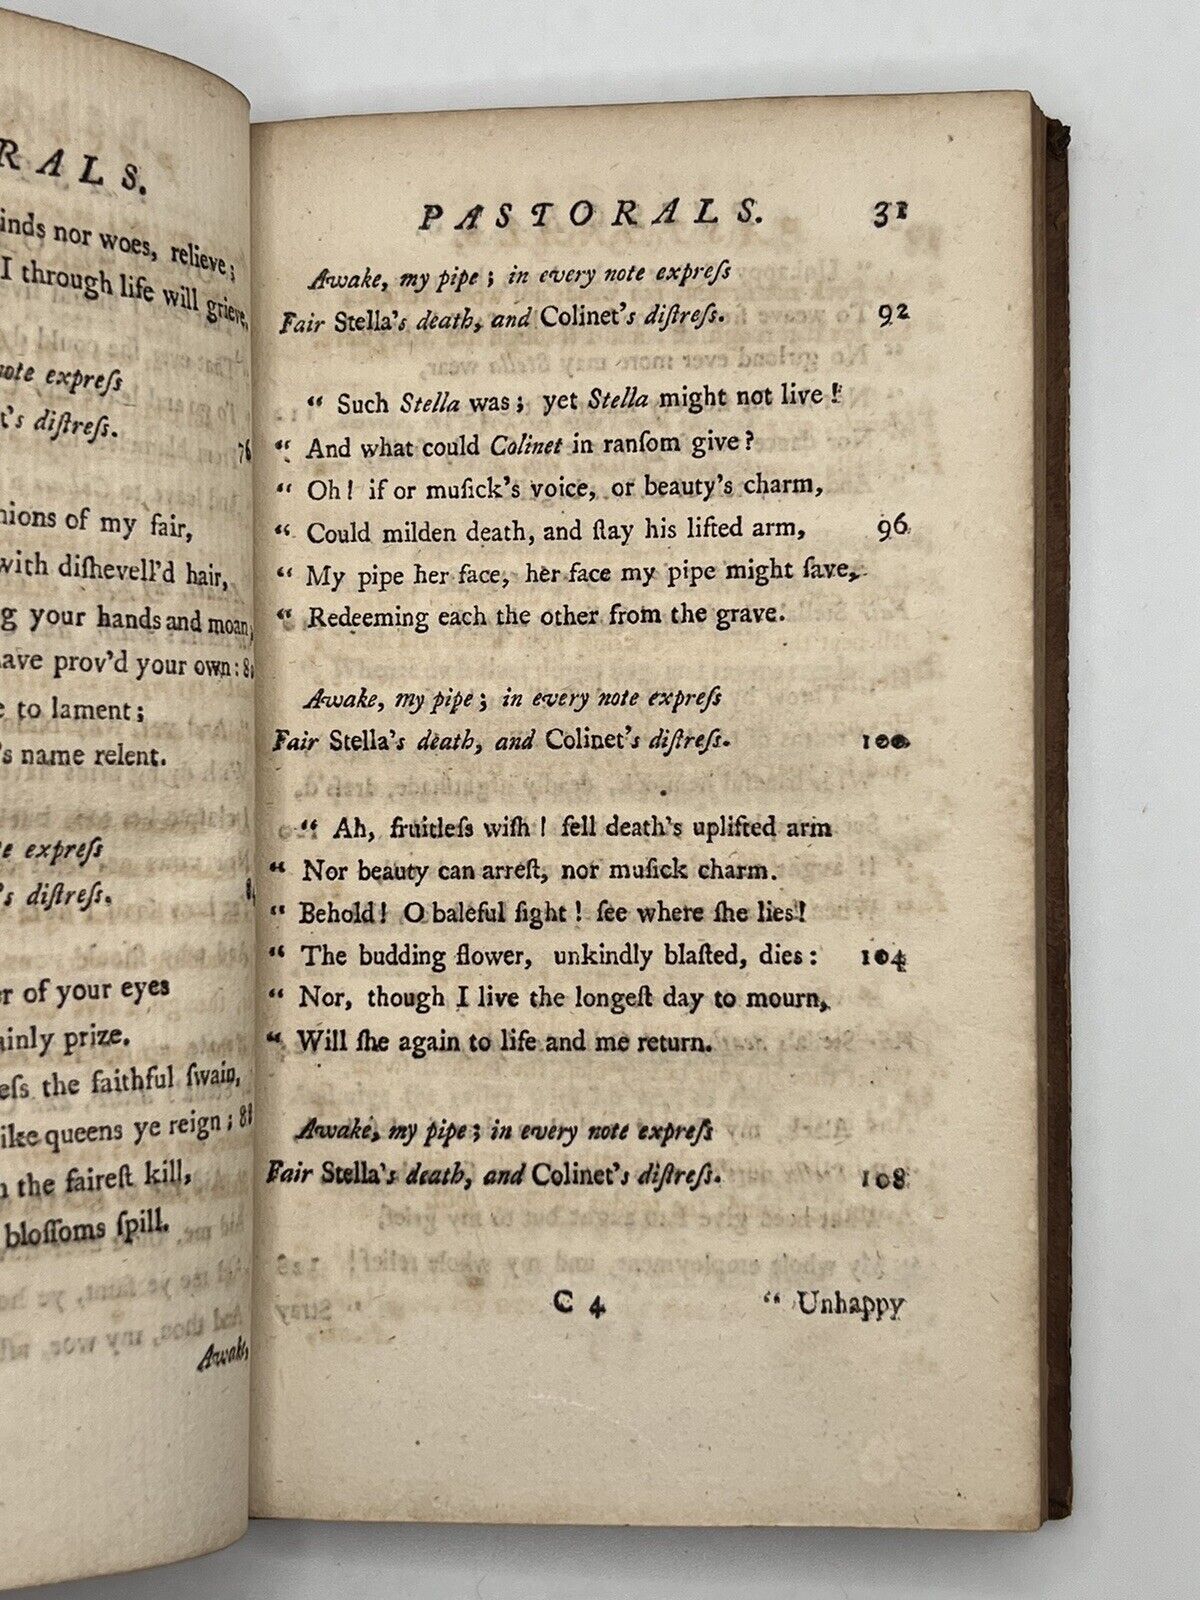 RALS.
inds nor woes, relieve;
I through life will grieve,
note expreſs
t's diſtreſs.
76
nions of my fair,
with diſhevell'd hair,
g your hands and moan,
ave prov'd your own: 8
e to lament;
's name relent.
e expreſs
's diſtreſs.
r of your eyes
ainly prize.
eſs the faithful ſwain,
ike queens ye reign; 88
n the faireſt kill,
bloſſoms ſpill.
Awake,
PASTORALS. 31
Awake, my pipe; in every note expreſs
Fair Stella's death, and Colinet's diſtreſs. 92
“ Such Stella was; yet Stella might not live!
“ And what could Colinet in ranſom give?
“ Oh! if or muſick's voice, or beauty's charm,
“ Could milden death, and ſtay his lifted arm, 96
“ My pipe her face, her face my pipe might ſave,
“ Redeeming each the other from the grave.
Awake, my pipe; in every note expreſs
Fair Stella's death, and Colinet's diſtreſs. 100
“ Ah, fruitleſs wiſh! fell death's uplifted arm
“ Nor beauty can arreſt, nor muſick charm.
“ Behold! O baleful ſight! ſee where ſhe lies!
“ The budding flower, unkindly blaſted, dies: 104
“ Nor, though I live the longeſt day to mourn,
“ Will ſhe again to life and me return.
Awake, my pipe; in every note expreſs
Fair Stella's death, and Colinet's diſtreſs. 108
C 4 “ Unhappy